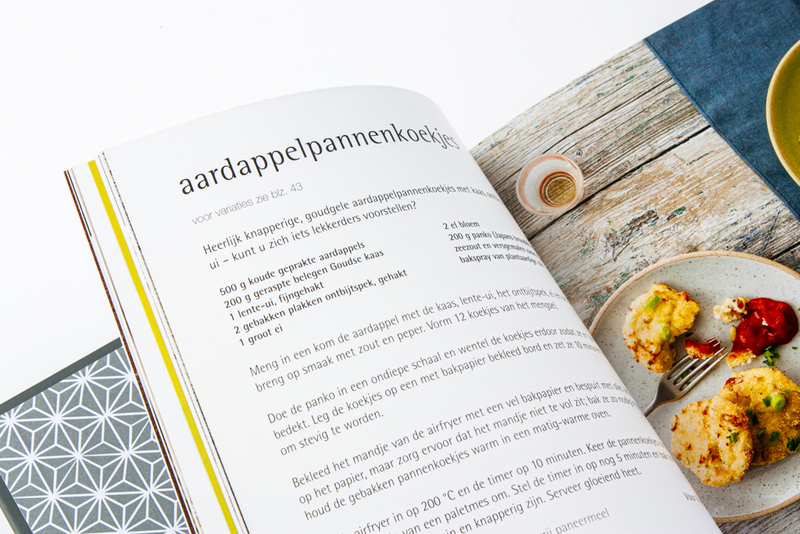 aardappelpannenkoekjes
voor variaties zie blz. 43
Heerlijk knapperige, goudgele aardappelpannenkoekjes met kaas,
ui – kunt u zich iets lekkerders voorstellen?
500 g koude geprakte aardappels
200 g geraspte belegen Goudse kaas
1 lente-ui, fijngehakt
2 gebakken plakken ontbijtspek, gehakt
1 groot ei
2 el bloem
200 g panko (Japans
zeezout en versgemalen
bakspray van plantaardige
Meng in een kom de aardappel met de kaas, lente-ui, het ontbijtspek,
breng op smaak met zout en peper. Vorm 12 koekjes van het mengsel.
Doe de panko in een ondiepe schaal en wentel de koekjes erdoor zodat
bedekt. Leg de koekjes op een met bakpapier bekleed bord en zet ze 10
om stevig te worden.
Bekleed het mandje van de airfryer met een vel bakpapier en bespuit met
op het papier, maar zorg ervoor dat het mandje niet te vol zit; bak ze zo nodig
houd de gebakken pannenkoekjes warm in een matig-warme oven.
airfryer in op 200 °C en de timer op 10 minuten. Keer de pannenkoekjes
van een paletmes om. Stel de timer in op nog 5 minuten en bak
in en knapperig zijn. Serveer gloeiend heet.
paneermeel